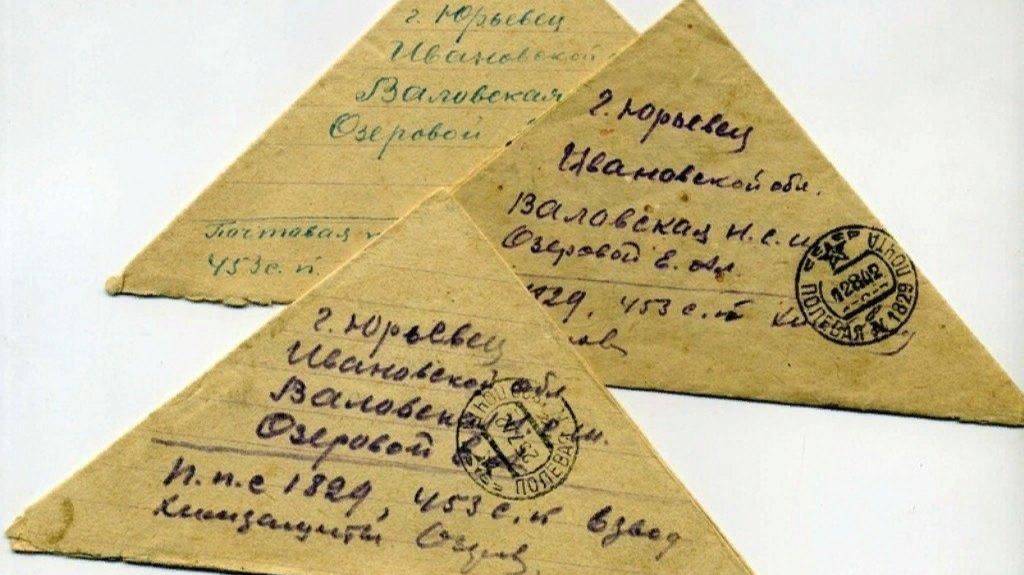 г. Юрьевец
Ивановской
Валовская
Озеровой
453 с. п
г. Юрьевец
Ивановской обл.
Валовская н. с. ш
Озеровой
1829, 453 с. п
ПОЛЕВАЯ ПОЧТА
1829
г. Юрьевец
Ивановской обл
Валовская н. с. ш.
Озеровой
П. п. с 1829, 453 с. п взвод
химзащиты
ПОЛЕВАЯ